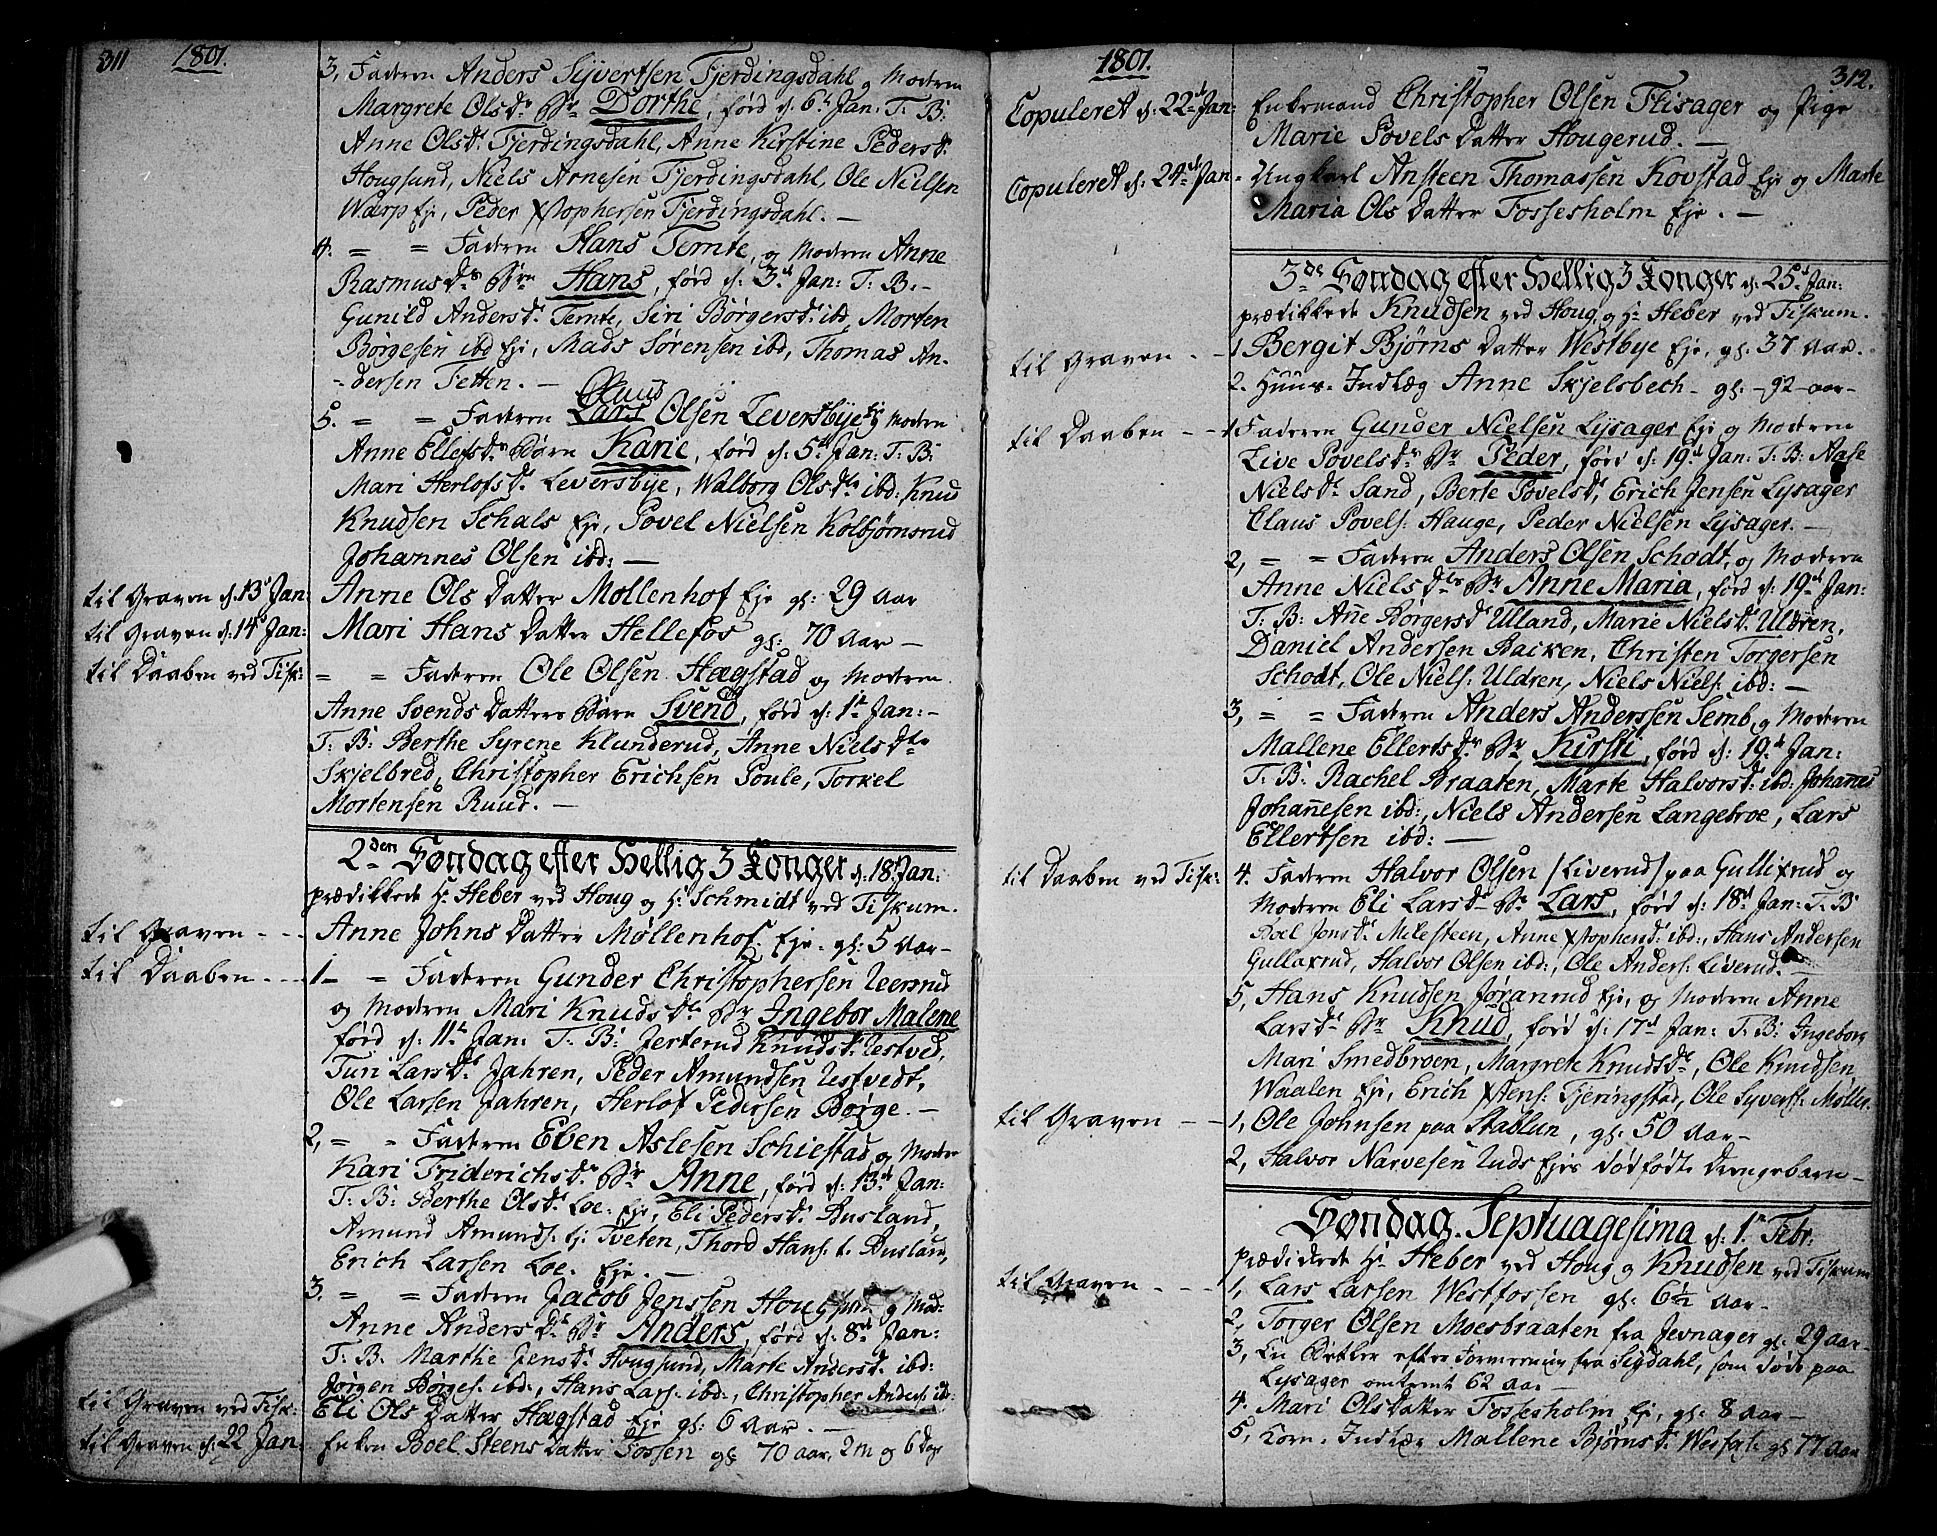 311 1801.
3, Faderen Anders Syvertsen Fjerdingsdahl og Moderen
Margrete Olsd. Br. Dorthe, förd d: 6t Jan: T. B:
Anne Olsd. Fjerdingsdahl, Anne Kirstine Pedersd.
Hougsund, Niels Arnesen Fjerdingsdahl, Ole Nielsen
Warp Eje, Peder Xstophersen Fjerdingsdahl. —
4. = = Faderen Hans Temte, og Moderen Anne
Rasmusd. Brn Hans, förd d: 3d Jan: T. B. -
Gunild Andersd. Temte, Siri Börgersd. ibd, Morten
Börgesen ibd Eje, Mads Sörensen ibd, Thomas An-
-dersen Tetten. —
Knud
5. = = Faderen Lars Olsen Leversbye Ej og Moderen
Anne Ellefsd. Börn Karie, förd d: 5t Jan: T. B:
Mari Herlofsd. Leversbye, Walborg Olsd. ibd: Knud
Knudsen Schals Eje, Povel Nielsen Kolbjörnsrud
Johannes Olsen ibd: —
til Graven d. 13d Jan: Anne Ols Datter Möllenhof Eje gl: 29 Aar
til Graven d: 14d Jan: Mari Hans Datter Hellefos gl: 70 Aar —
til Daaben ved Fisk: = = Faderen Ole Olsen Hagstad og Moderen
Anne Svends Datters Barn Svend, förd d: 1t Jan: -
T. B: Berthe Syrene Klunderud, Anne Nielsd.
Skjelbred, Christopher Erichsen Poule, Torkel
Mortensen Ruud. —
2den Söndag efter Hellig 3 Konger d: 18d Jan:
prædikkede Hr Heber ved Houg og Hr Schmidt ved Fiskum.
til Graven - - - Anne Johns Datter Möllenhof. Eje. gl: 5 Aar -
til Daaben - - - 1 - = Faderen Gunder Christophersen Teersrud
og Moderen Mari Knudsd. Br Ingebor Malene
förd d: 11t Jan: T. B: Jerterud Knudsd. Testved,
Turi Larsd. Jahren, Peder Amundsen Testvedt,
Ole Larsen Jahren, Herlof Pedersen Börge. —
2, = = Faderen Eben Aslesen Schiestad og Moder
Kari Friderichsd. Br Anne, förd d: 13d Jan:
T. B: Berthe Olsd. Loe. Eje, Eli Pedersd. Busland,
Amund Amunds. Ej Tveten, Thord Hans. t. Busland,
Erich Larsen Loe. Eje. —
3. = = Faderen Jacob Jenssen Hougsund og Mod:
Anne Andersd. Br Anders, förd d: 8d Jan:
T. B. Marthe Jensd. Hougsund, Marte Andersd. ibd:
Jörgen Börges. ibd:, Hans Lars. ibd:, Christopher Anders. ibd:
til Graven ved Fisk: Eli Ols Datter Hagstad Eje gl: 6 Aar. —
til Graven d: 22 Jan: Enken Boel Steens Datter Fossen gl: 70 aar, 2 m og 6 Dage
1801. 312.
Copuleret d: 22d Jan: Enkemand Christopher Olsen Flisager og Pige
Marie Povels Datter Hougerud. —
Copuleret d: 24d Jan - Ungkarl Ansteen Thomassen Kovstad Eje og Marte
Maria Ols Datter Fossesholm Eje. —
3de Söndag efter Hellig 3 Konger d: 25d Jan:
prædikkede Knudsen ved Houg, og Hr Heber ved Fiskum.
til Graven. - - 1 Bergit Björns Datter Westbye Eje, gl: 37 Aar.
2. Huus-Indlæg Anne Skjelsbech - gl: - 92 - aar -
til Daaben - - 1 Faderen Gunder Nielsen Lysager Eje og Moderen
Live Povelsd. Br Peder, förd d: 19d Jan: T. B: Aase
Nielsd. Sand, Berte Povelsd, Erich Jensen Lysager
Claus Povels: Hauge, Peder Nielsen Lysager. —
2, = = Faderen Anders Olsen Schodt, og Moderen
Anne Nielsd. Br Anne Maria, förd d: 19d Jan:
T. B: Ane Börgersd Ulland, Marie Nielsd. Uldren,
Daniel Andersen Backen, Christen Torgersen
Schodt, Ole Niels: Uldren, Niels Niels: ibd: —
3, = = Faderen Anders Anderssen Semb, og Moderen
Mallene Ellertsd. Br Kirsti, förd d: 19d Jan:
T. B: Rachel Braaten, Marte Halvorsd: ibd: Johanes
Johanesen ibd:, Niels Andersen Langebroe, Lars
Ellertsen ibd: —
til Daaben ved Fisk: 4. Faderen Halvor Olsen /Liverud/ paa Gullixrud og
Moderen Eli Larsd Br Lars, förd d: 18d Jan: T. B:
Boel Jonsd. Milesteen, Anne Xstophersd: ibd:, Hans Andersen
Gullaxrud, Halvor Olsen ibd:, Ole Anders: Liverud. —
5, Hans Knudsen Jöranrud Eje, og Moderen Anne
Larsd. Br Knud, förd d: 17d Jan: T. B: Ingeborg
Mari Smedbroen, Margrete Knudsd., Ole Knudsen
Waalen Eje, Erich Xstens: Tjeringstad, Ole Syvers: Möller.
til Graven - - 1, Ole Johnsen paa Stablun, gl: 50 Aar -
2, Halvor Narvesen Luds Ejes dödfödte Drengebarn -
Söndag. Septuagesima d: 1te Febr:
prædikede Hr Heber ved Houg og Knudsen ved Fiskum
til Graven - - - 1, Lars Larsen Westfossen gl: 6 1/2 Aar -
2, Torger Olsen Moesbraaten fra Jevnager gl: 29 aar -
3, En Betler efter Formeening fra Sigdahl, som döde paa
Lysager omtrent 62 aar -
4. Mari Olsdatter Fossesholm Eje, gl: 8 Aar -
5, Korn. Indlæg Mallene Björnsd. Wesfos: gl 77 Aar